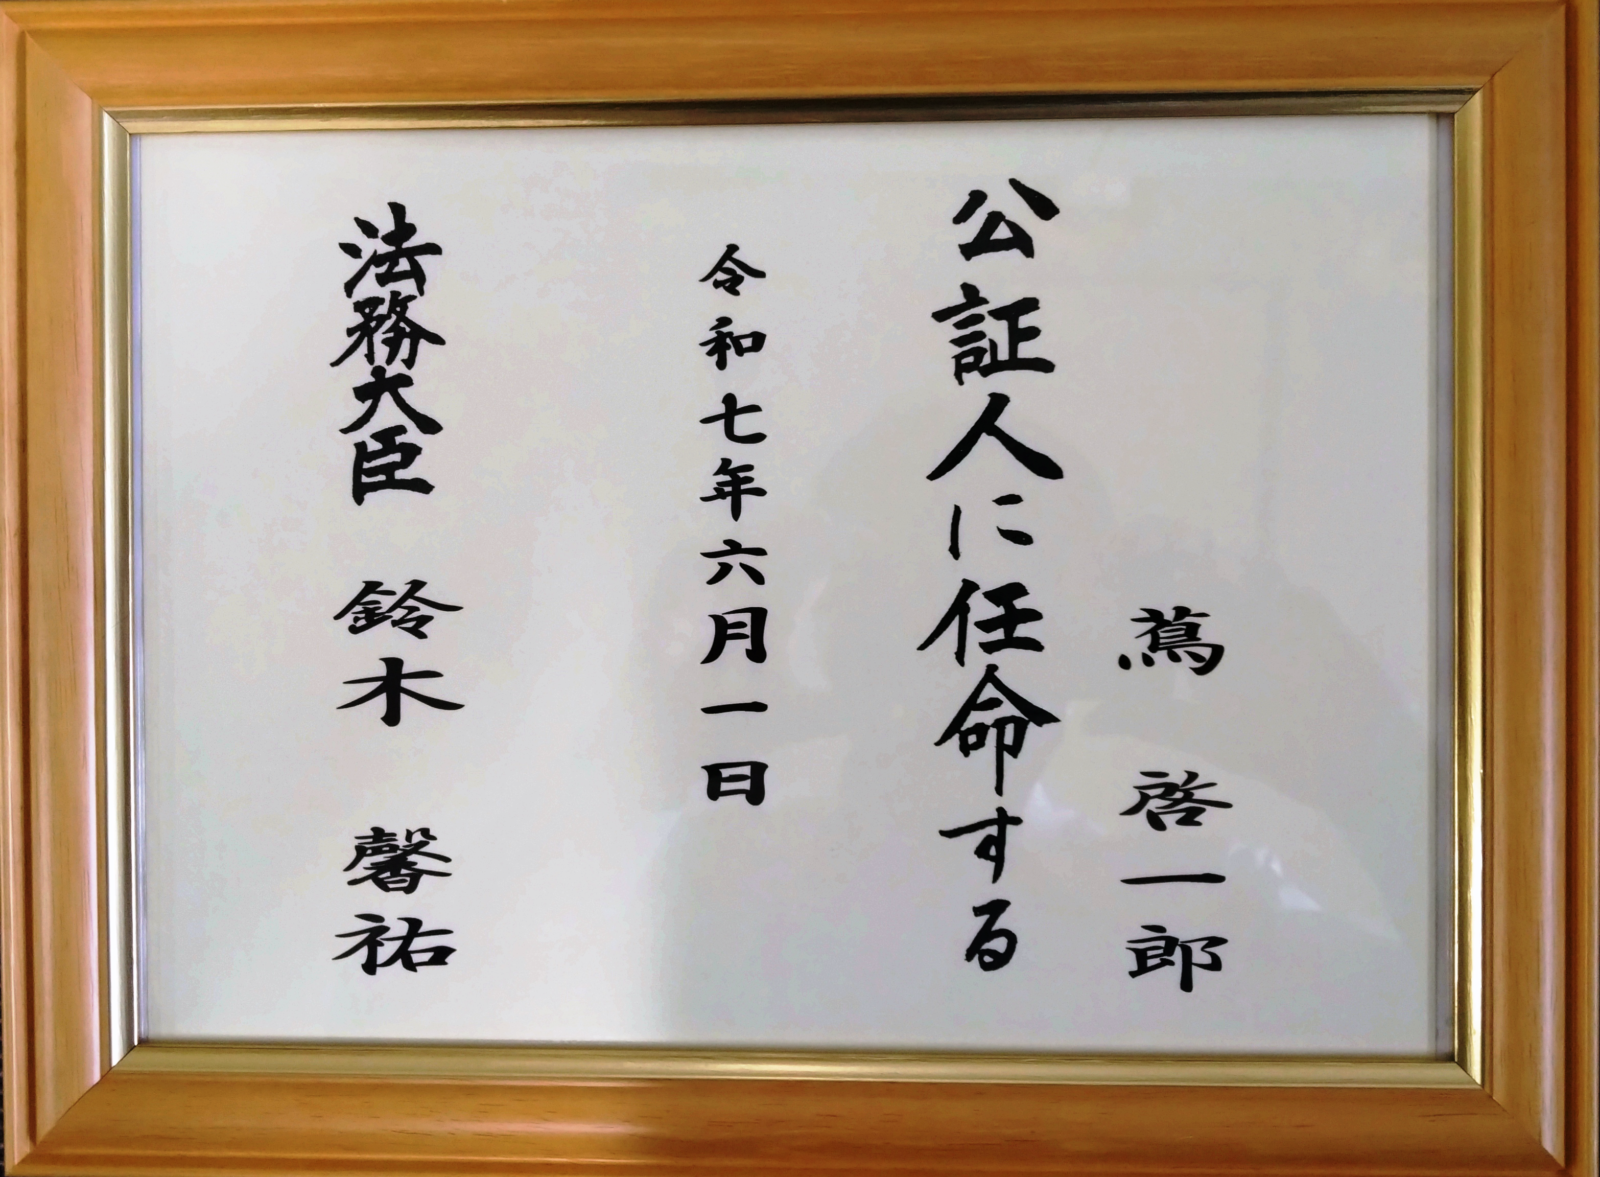 蔦 啓一郎
公証人に任命する
令和七年六月一日
法務大臣 鈴木 馨祐